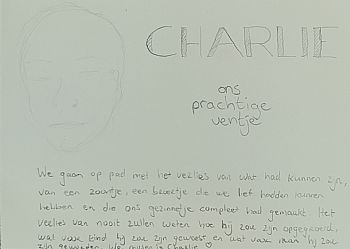 CHARLIE
ons
prachtige
ventje
We gaan op pad met het verlies van wat had kunnen zijn,
van een zoontje, een broertje die we lief hadden kunnen
hebben en die ons gezinnetje compleet had gemaakt. Het
verlies van nooit zullen weten hoe hij zou zijn opgegroeid,
wat voor kind hij zou zijn geweest en wat voor man hij zou
zijn geworden. We missen je Charlie